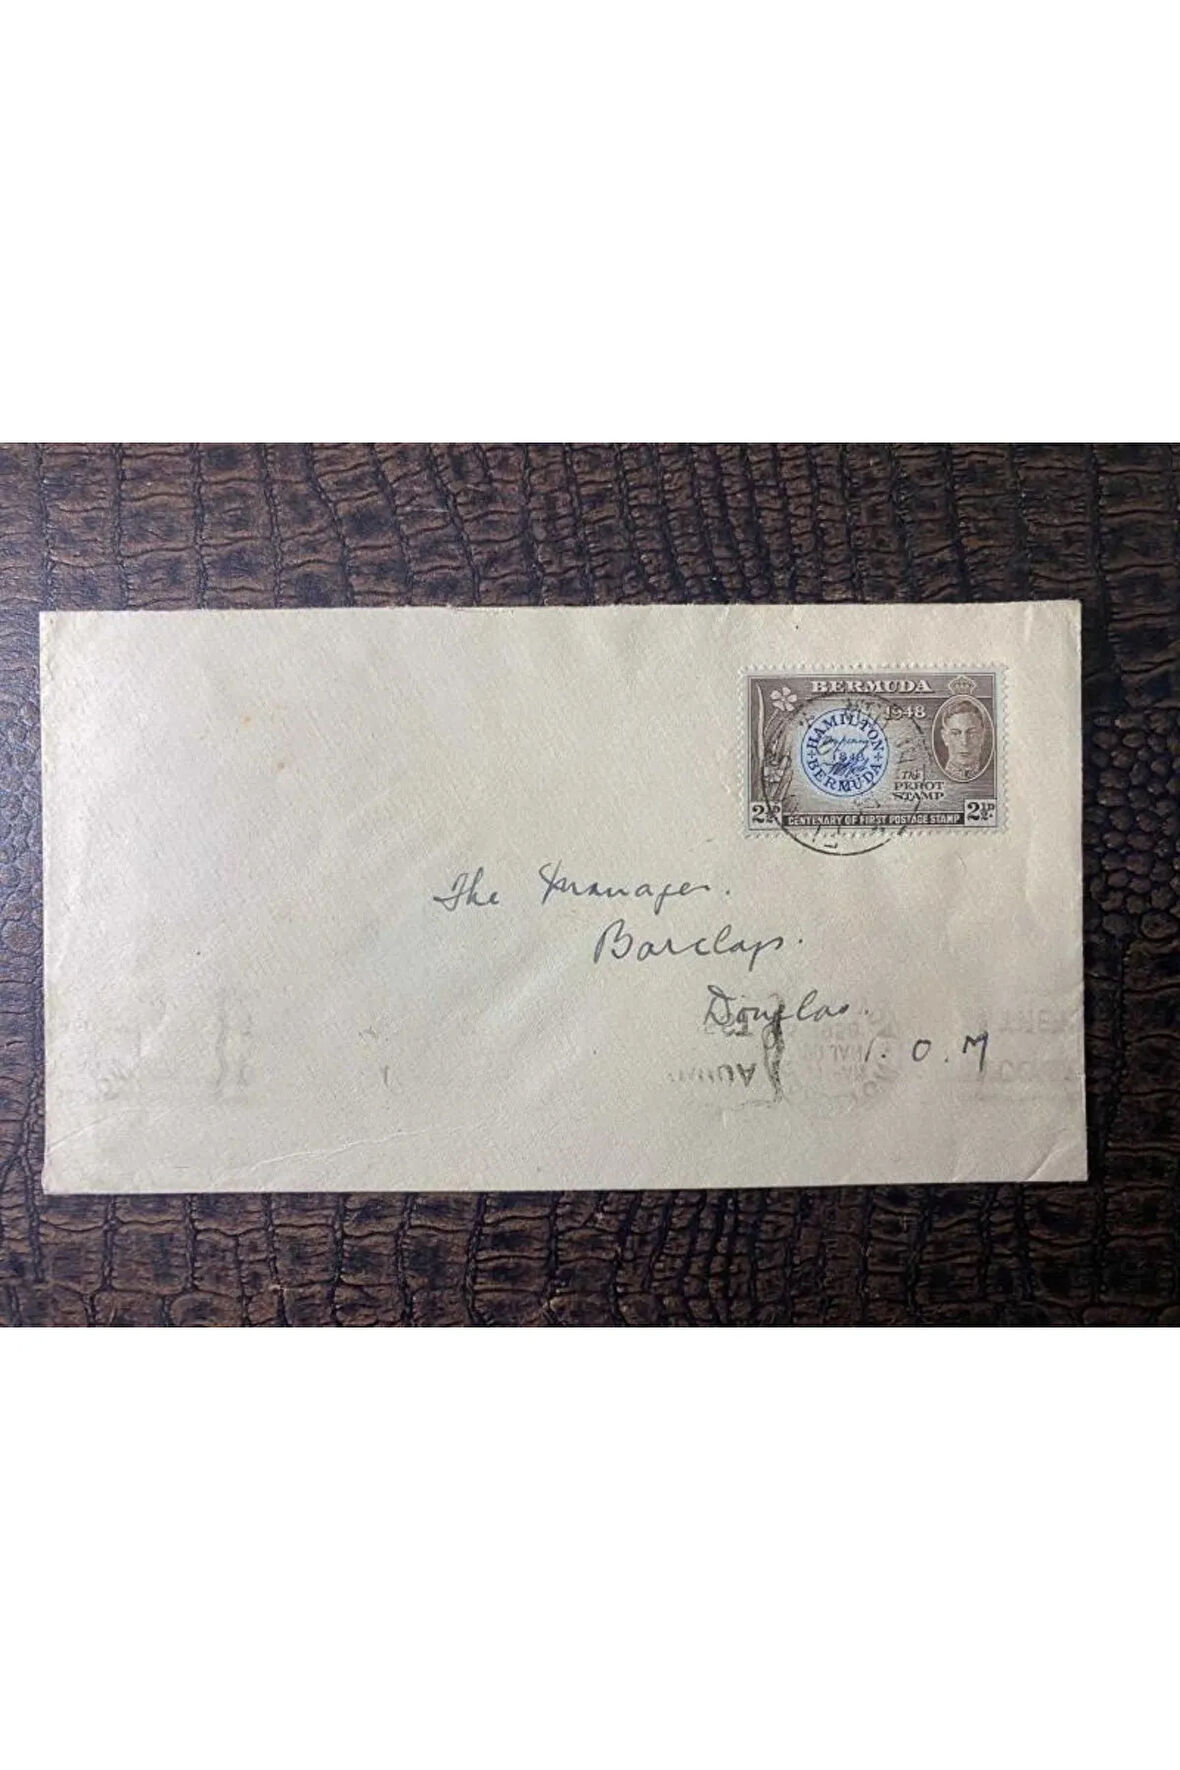 BERMUDA
1948
HAMILTON
1848
BERMUDA
The
PEROT
STAMP
2½D
CENTENARY OF FIRST POSTAGE STAMP
2½D
The Manager.
Barclays.
Douglas.
I. O. M